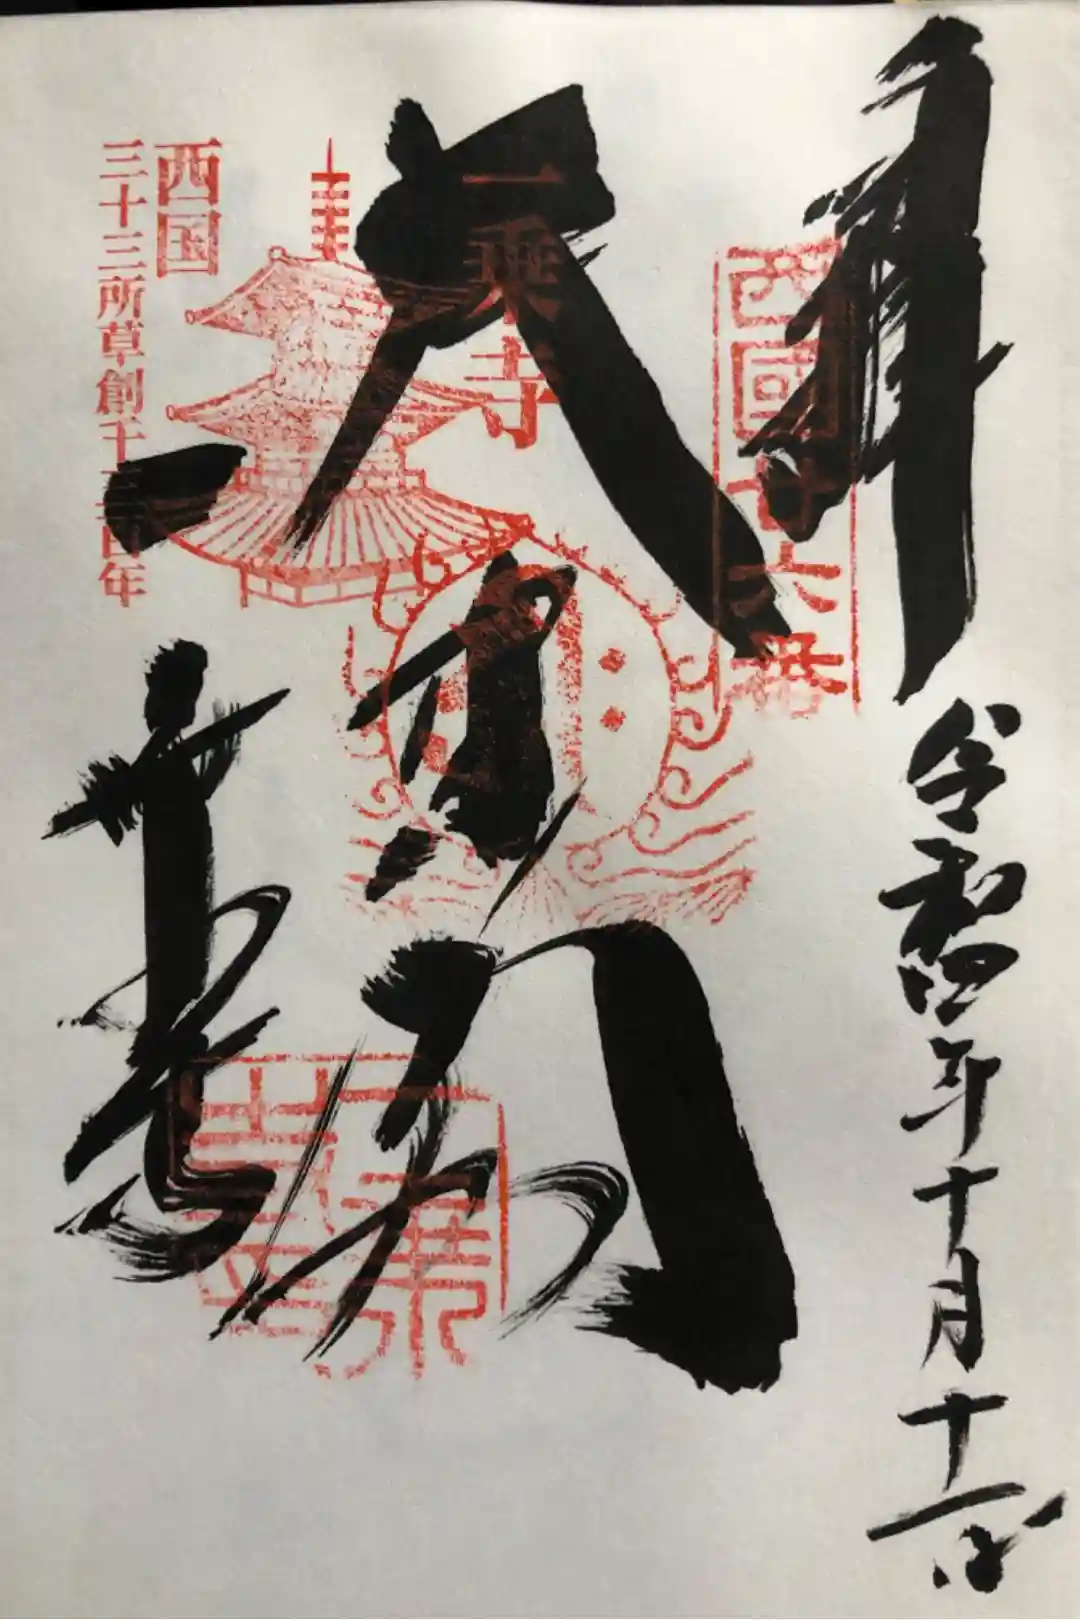 拝
令和四年十月十一日
西國廿六番
大悲閣
一乗寺
一乗寺
西国
三十三所草創千三百年